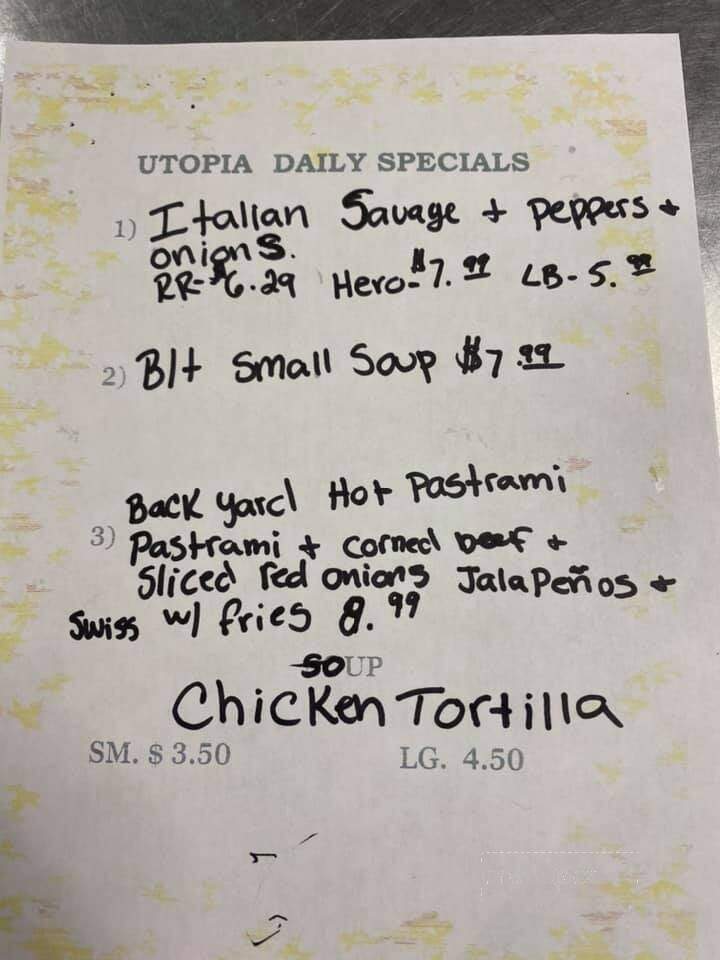 UTOPIA DAILY SPECIALS
1) Italian Sauage + Peppers +
onions.
RR-$6.29 Hero-$7.99 LB-5.99
2) Blt Small Soup $7.99
Back yard Hot Pastrami
3) Pastrami + corned beef +
Sliced red onions JalaPeños +
Swiss w/ fries 8.99
SOUP
Chicken Tortilla
SM. $ 3.50 LG. 4.50